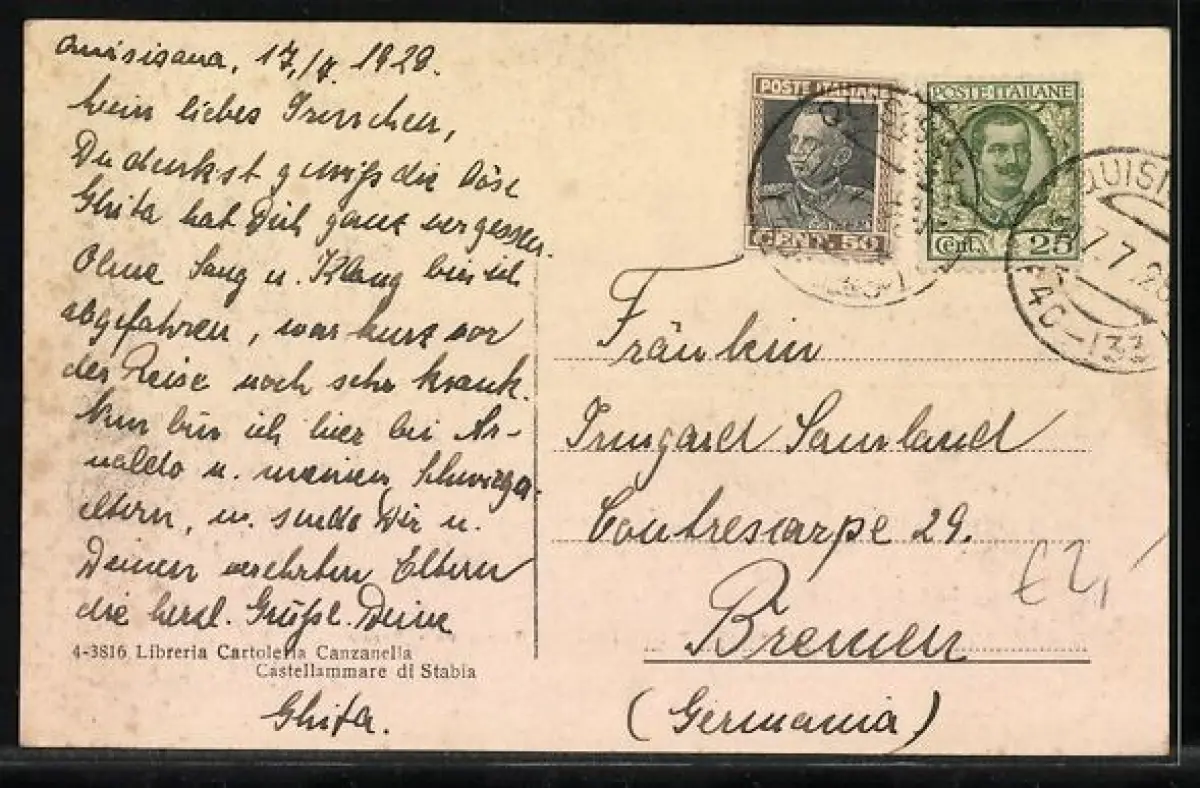 Quisisana, 17./7. 1928.
Mein liebes Irmchen,
Du denkst gewiß die böse
Ghita hat Dich ganz vergessen.
Ohne Sang u. Klang bin ich
abgefahren, war kurz vor
der Reise noch sehr krank.
Nun bin ich hier bei Ar-
naldo u. meinen Schwieger-
eltern, u. sende Dir u.
Deinen verehrten Eltern
die herzl. Grüße. Deine
Ghita.
4-3816 Libreria Cartoleria Canzanella
Castellammare di Stabia
POSTE ITALIANE
CENT. 50
POSTE·ITALIANE
Cent. 25
QUISI
7.7.28
Fräulein
Irmgard Saurland
Contrescarpe 29.
Bremen
(Germania)